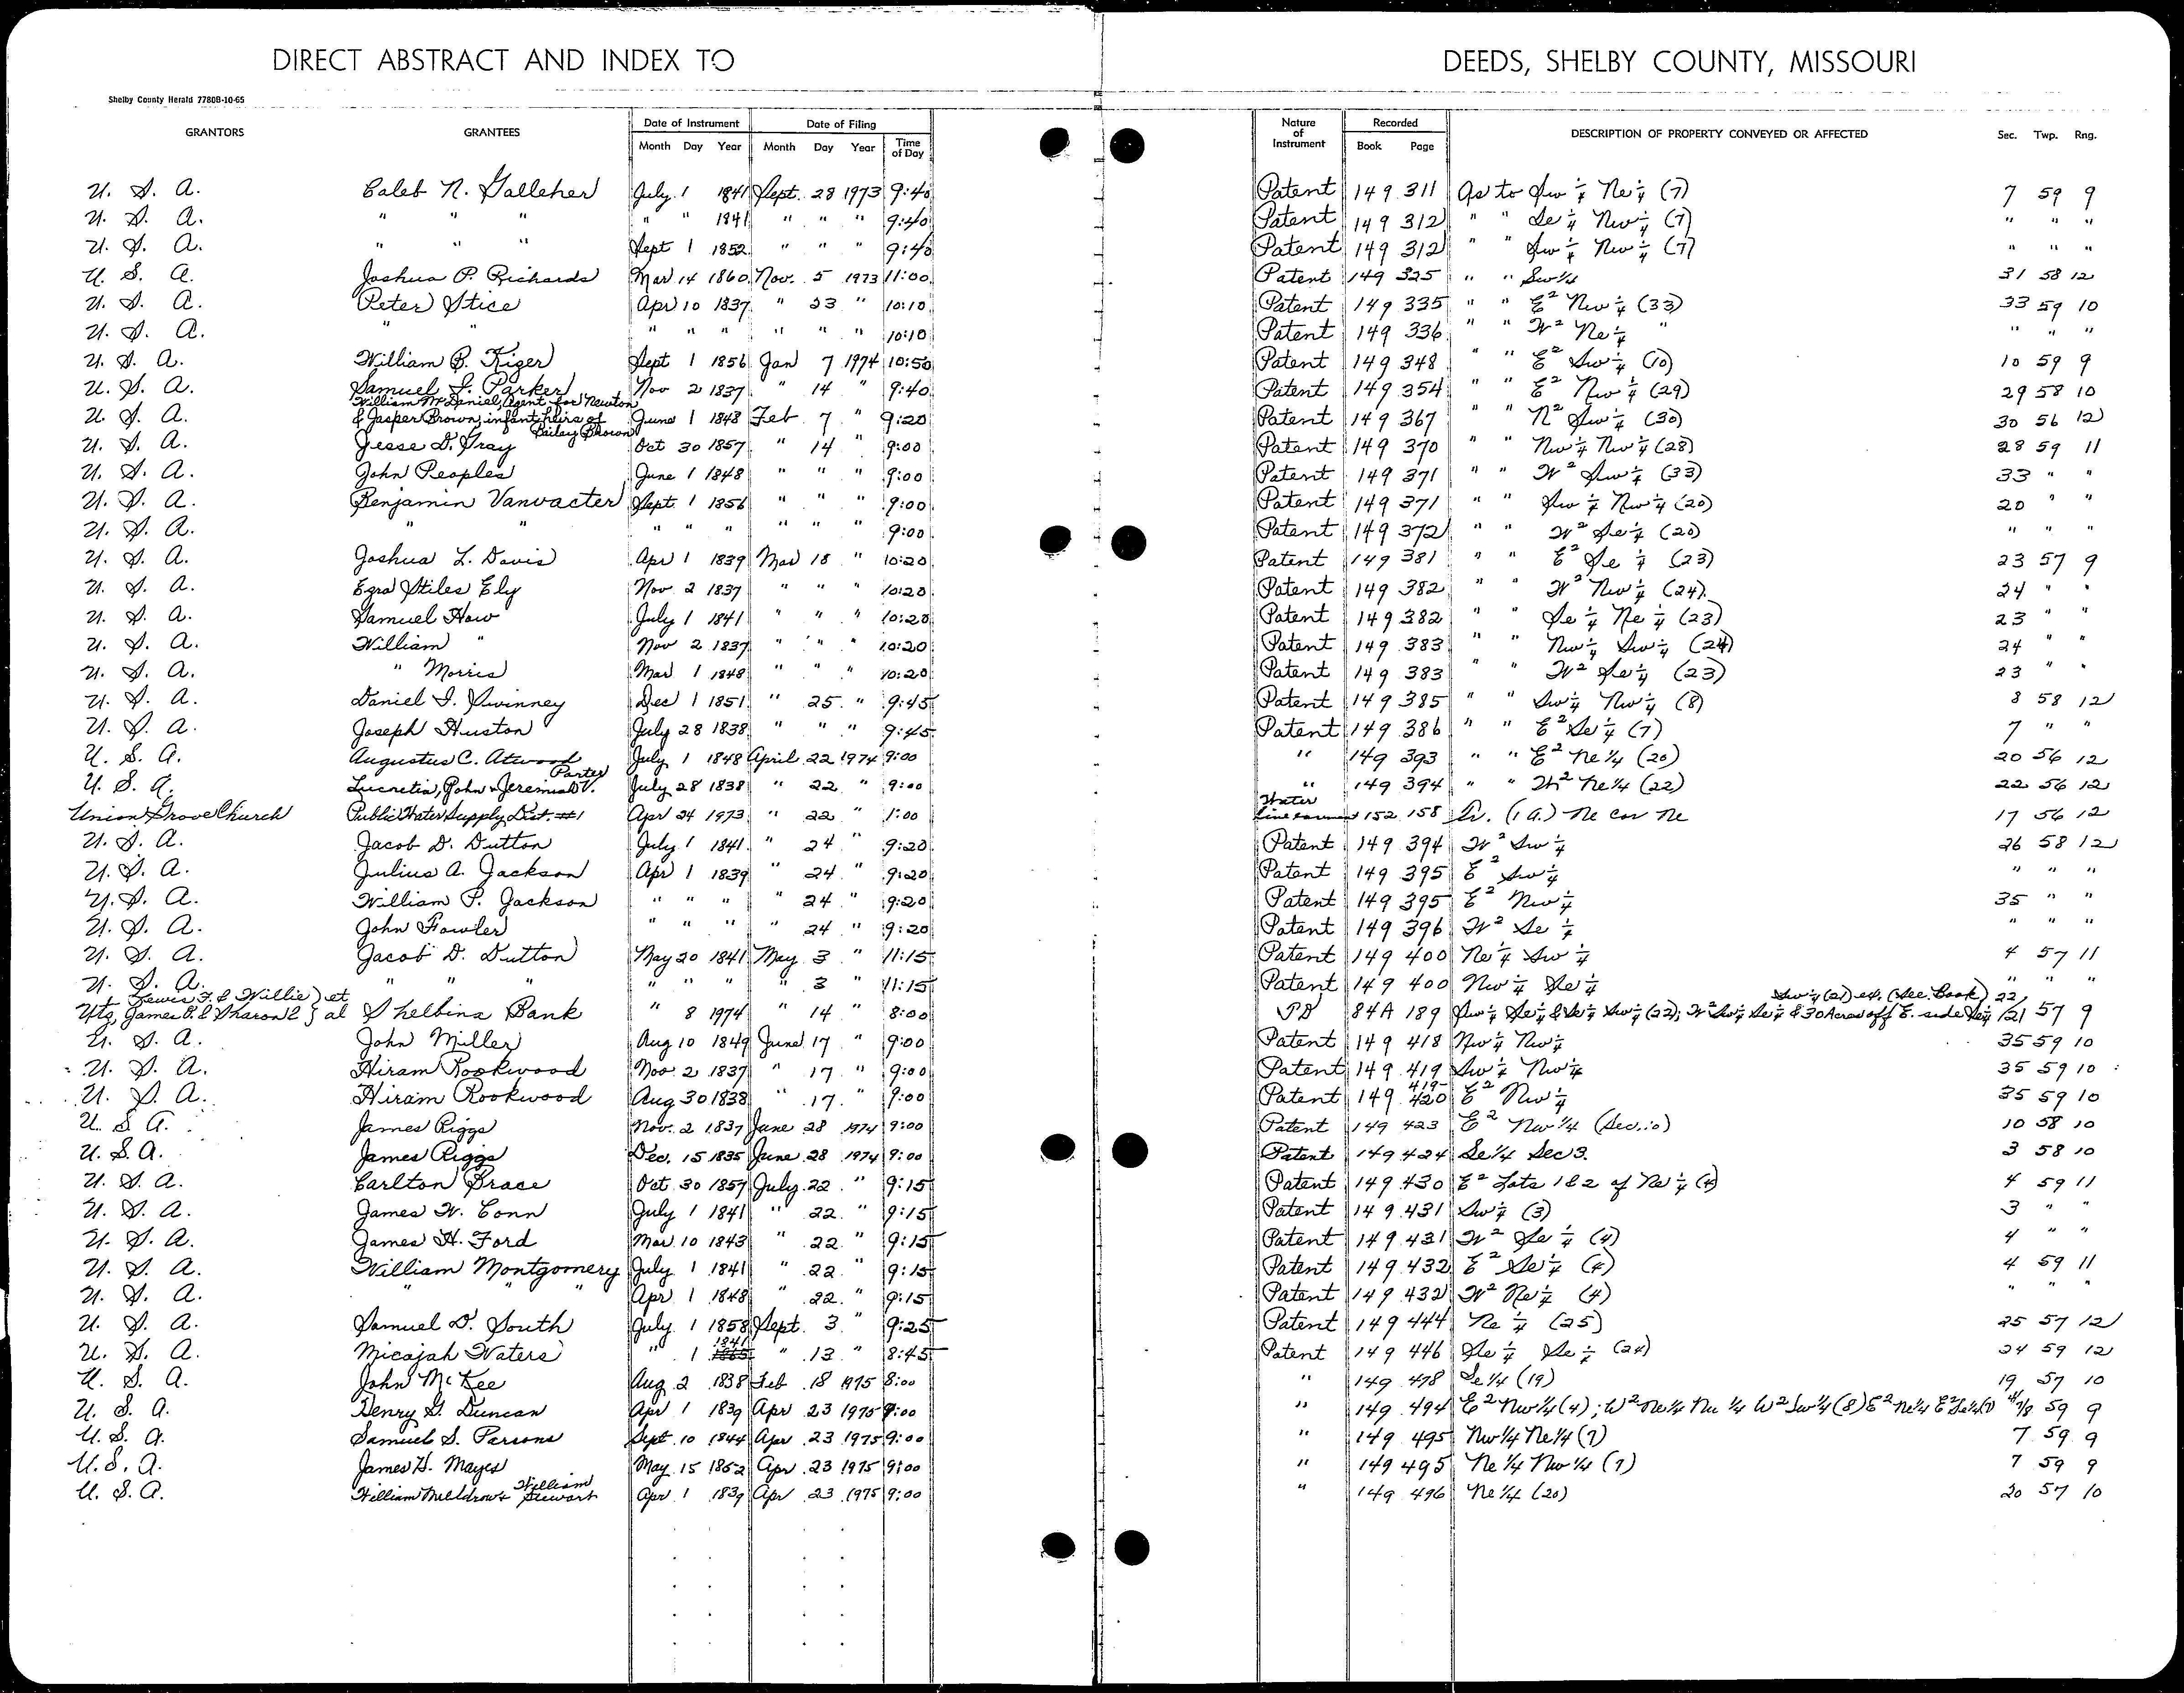 DIRECT ABSTRACT AND INDEX TO DEEDS, SHELBY COUNTY, MISSOURI
Shelby County Herald 7780B-10-65
GRANTORS GRANTEES Date of Instrument Date of Filing Nature of Instrument Recorded DESCRIPTION OF PROPERTY CONVEYED OR AFFECTED Sec. Twp. Rng.
Month Day Year Month Day Year Time of Day Book Page
U. S. A. Caleb N. Galleher July 1 1841 Sept. 28 1973 9:40 Patent 149 311 As to Sw 1/4 Ne 1/4 (7) 7 59 9
U. S. A. " " " " " 1841 " " " 9:40 Patent 149 312 " " Se 1/4 Nw 1/4 (7) " " "
U. S. A. " " " Sept 1 1852 " " " 9:40 Patent 149 312 " " Sw 1/4 Nw 1/4 (7) " " "
U. S. A. Joshua P. Richards Mar 14 1860 Nov. 5 1973 11:00 Patent 149 325 " " Sw 1/4 31 58 12
U. S. A. Peter Stice Apr 10 1837 " 23 " 10:10 Patent 149 335 " " E² Nw 1/4 (33) 33 59 10
U. S. A. " " " " " " " " 10:10 Patent 149 336 " " W² Ne 1/4 " " " "
U. S. A. William B. Kiger Sept 1 1856 Jan 7 1974 10:50 Patent 149 348 " " E² Sw 1/4 (10) 10 59 9
U. S. A. Samuel J. Parker Nov 2 1837 " 14 " 9:40 Patent 149 354 " " E² Nw 1/4 (29) 29 58 10
William McDaniel, Agent for Newton
U. S. A. & Jasper Brown, infant heirs of Bailey Brown June 1 1848 Feb 7 " 9:20 Patent 149 367 " " N² Sw 1/4 (30) 30 56 12
U. S. A. Jesse D. Gray Oct 30 1857 " 14 " 9:00 Patent 149 370 " " Nw 1/4 Nw 1/4 (28) 28 59 11
U. S. A. John Peoples June 1 1848 " " " 9:00 Patent 149 371 " " W² Sw 1/4 (33) 33 " "
U. S. A. Benjamin Vanvacter Sept 1 1856 " " " 9:00 Patent 149 371 " " Sw 1/4 Nw 1/4 (20) 20 " "
U. S. A. " " " " " " " " 9:00 Patent 149 372 " " W² Se 1/4 (20) " " "
U. S. A. Joshua L. Davis Apr 1 1839 Mar 18 " 10:20 Patent 149 381 " " E² Se 1/4 (23) 23 57 9
U. S. A. Ezra Stiles Ely Nov 2 1837 " " " 10:20 Patent 149 382 " " W² Nw 1/4 (24) 24 " "
U. S. A. Samuel How July 1 1841 " " " 10:20 Patent 149 382 " " Se 1/4 Ne 1/4 (23) 23 " "
U. S. A. William " Nov 2 1837 " " " 10:20 Patent 149 383 " " Nw 1/4 Sw 1/4 (24) 24 " "
U. S. A. " Morris Mar 1 1848 " " " 10:20 Patent 149 383 " " W² Se 1/4 (23) 23 " "
U. S. A. Daniel J. Swinney Dec 1 1851 " 25 " 9:45 Patent 149 385 " " Sw 1/4 Nw 1/4 (8) 8 58 12
U. S. A. Joseph Huston July 28 1838 " " " 9:45 Patent 149 386 " " E² Se 1/4 (7) 7 " "
U. S. A. Augustus C. Atwood July 1 1848 April 22 1974 9:00 " 149 393 " " E² Ne 1/4 (20) 20 56 12
U. S. A. Lucretia, John & Jeremiah V. Parter July 28 1838 " 22 " 9:00 " 149 394 " " W² Ne 1/4 (22) 22 56 12
Union Grove Church Public Water Supply Dist. #1 Apr 24 1973 " 22 " 1:00 Water line 152 158 Tr. (1 A.) Ne cor Ne 17 56 12
U. S. A. Jacob D. Dutton July 1 1841 " 24 " 9:20 Patent 149 394 W² Sw 1/4 26 58 12
U. S. A. Julius A. Jackson Apr 1 1839 " 24 " 9:20 Patent 149 395 E² Sw 1/4 " " "
U. S. A. William P. Jackson " " " " 24 " 9:20 Patent 149 395 E² Nw 1/4 35 " "
U. S. A. John Fowler " " " " 24 " 9:20 Patent 149 396 W² Se 1/4 " " "
U. S. A. Jacob D. Dutton May 20 1841 May 3 " 11:15 Patent 149 400 Ne 1/4 Sw 1/4 4 57 11
U. S. A. " " " " " " " 3 " 11:15 Patent 149 400 Nw 1/4 Se 1/4 " " "
Lewis F. & Willie } et Sw 1/4 (21) etc. (See Book) 22/
Utz, James R. & Sharon L } al Shelbina Bank " 8 1974 " 14 " 8:00 84A 189 Sw 1/4 Se 1/4 & Se 1/4 Sw 1/4 (22); W² Sw 1/4 Se 1/4 & 30 Acres off E. side Se 1/4 /21 57 9
U. S. A. John Miller Aug 10 1849 June 17 " 9:00 Patent 149 418 Nw 1/4 Nw 1/4 35 59 10
U. S. A. Hiram Rookwood Nov. 2 1837 " 17 " 9:00 Patent 149 419 Sw 1/4 Nw 1/4 35 59 10
U. S. A. Hiram Rookwood Aug 30 1838 " 17 " 9:00 Patent 149 419-420 E² Nw 1/4 35 59 10
U. S. A. James Riggs Nov. 2 1837 June 28 1974 9:00 Patent 149 423 E² Nw 1/4 (Sec. 10) 10 58 10
U. S. A. James Riggs Dec. 15 1835 June 28 1974 9:00 Patent 149 424 Se 1/4 Sec 3. 3 58 10
U. S. A. Carlton Brace Oct 30 1857 July 22 " 9:15 Patent 149 430 E² Lots 1 & 2 of Ne 1/4 (4) 4 59 11
U. S. A. James W. Conn July 1 1841 " 22 " 9:15 Patent 149 431 Sw 1/4 (3) 3 " "
U. S. A. James H. Ford Mar 10 1843 " 22 " 9:15 Patent 149 431 W² Se 1/4 (4) 4 " "
U. S. A. William Montgomery July 1 1841 " 22 " 9:15 Patent 149 432 E² Se 1/4 (4) 4 59 11
U. S. A. " " " Apr 1 1848 " 22 " 9:15 Patent 149 432 W² Ne 1/4 (4) " " "
U. S. A. Samuel D. South July 1 1858 Sept. 3 " 9:25 Patent 149 444 Ne 1/4 (25) 25 57 12
U. S. A. Micajah Waters " 1 1841 " 13 " 8:45 Patent 149 446 Se 1/4 Se 1/4 (24) 24 59 12
U. S. A. John McKee Aug 2 1838 Feb 18 1975 8:00 " 149 478 Se 1/4 (19) 19 57 10
U. S. A. Henry G. Duncan Apr 1 1839 Apr 23 1975 9:00 " 149 494 E² Nw 1/4 (4); W² Ne 1/4 Nw 1/4 W² Sw 1/4 (8) E² Ne 1/4 E² Se 1/4 (7) 4/7/8 59 9
U. S. A. Samuel S. Parsons Sept 10 1844 Apr 23 1975 9:00 " 149 495 Nw 1/4 Ne 1/4 (7) 7 59 9
U. S. A. James H. Mayes May 15 1852 Apr 23 1975 9:00 " 149 495 Ne 1/4 Nw 1/4 (7) 7 59 9
U. S. A. William Muldrow & William Stewart Apr 1 1839 Apr 23 1975 9:00 " 149 496 Ne 1/4 (20) 20 57 10